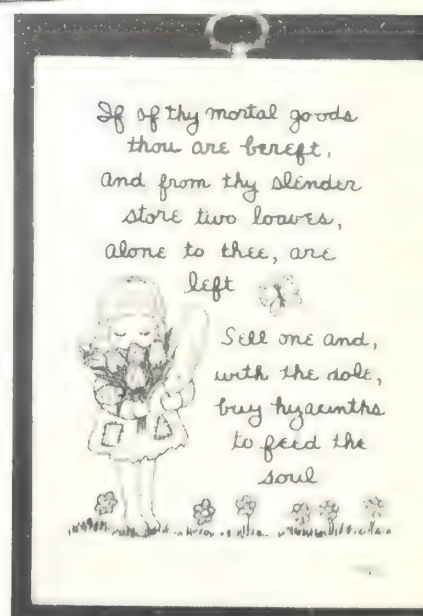 If of thy mortal goods
thou are bereft,
and from thy slender
store two loaves,
alone to thee, are
left
Sell one and,
with the dole,
buy hyacinths
to feed the
soul